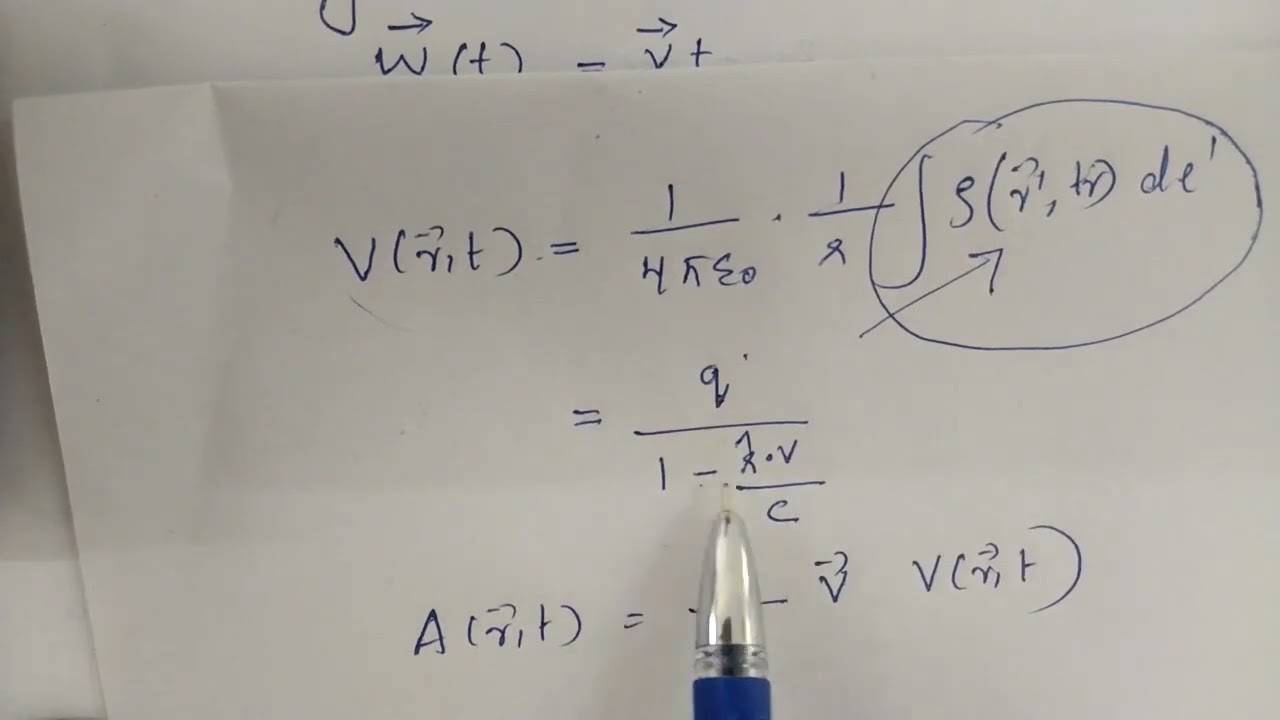 w⃗ (t) = v⃗ t
V(r⃗, t) = 1/4πε₀ · 1/r ∫ ρ(r⃗', tr) dτ'
= q / 1 - r̂·v/c
A(r⃗, t) = v⃗ V(r⃗, t)